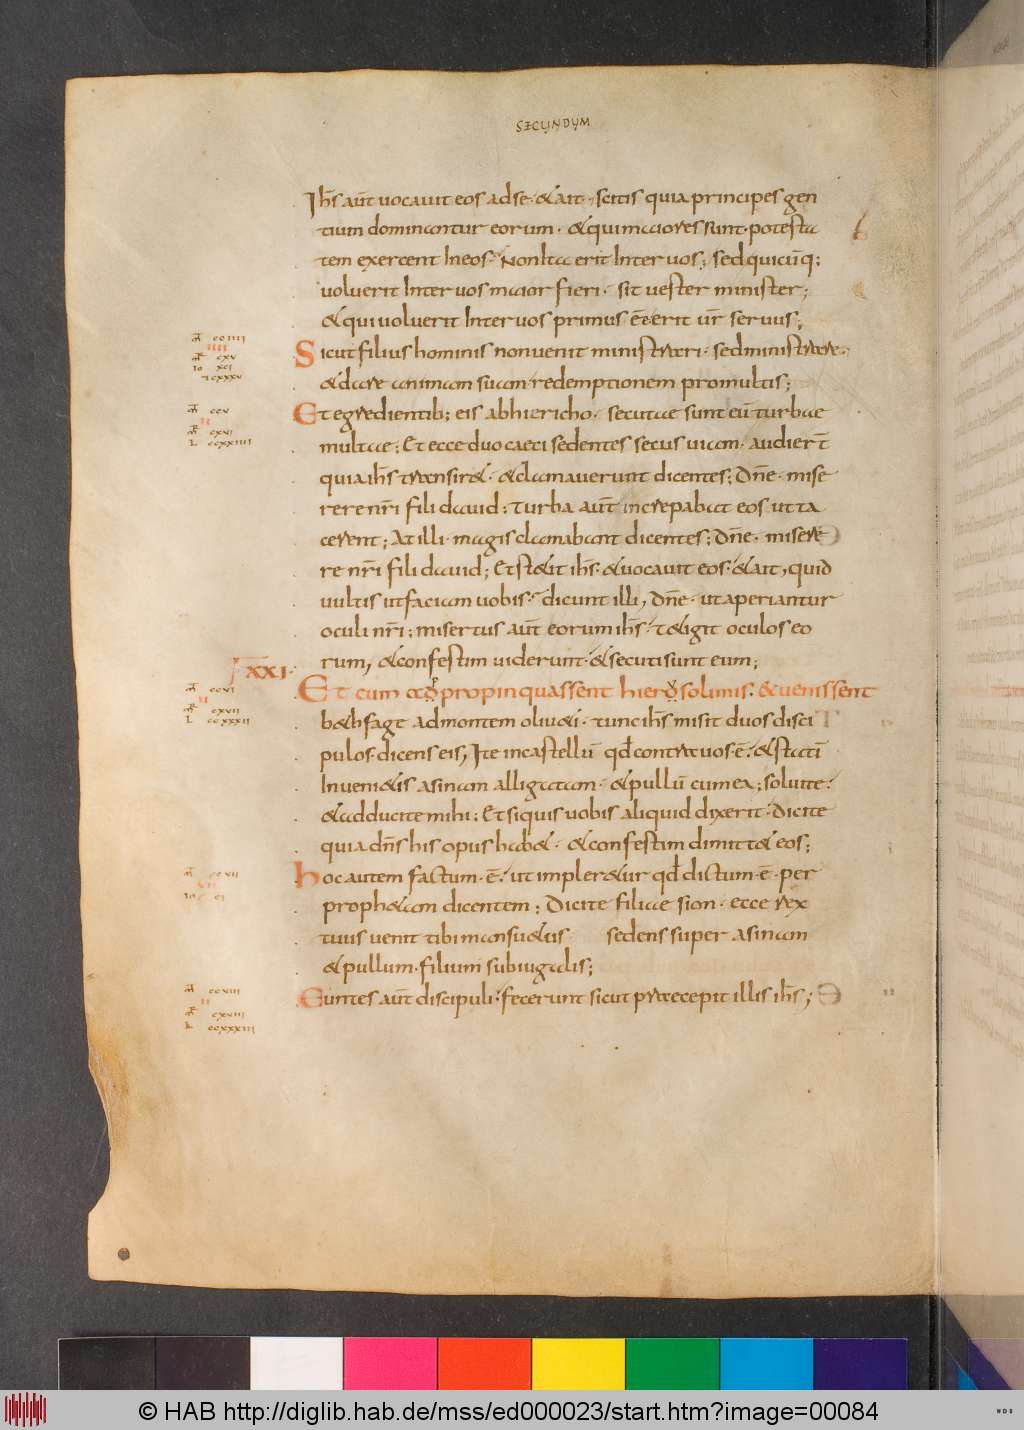 SECUNDUM
Ihs̄ aūt uocauit eos adse · &ait · scitis quia principes gen
tium dominantur eorum · &quimaiores sunt · potesta
tem exercent Ineos · NonIta erit Inter uos ; sed quicūq:
uoluerit Inter uos maior fieri · sit uester minister ;
&qui uoluerit Inter uos primus ē erit ur̄ seruus ;
Sicut filius hominis non uenit ministrari · sed ministrare ·
&dare animam suam redemptionem promultis ;
Et egredientib; eis abhiericho · secutae sunt eū turbae
multae ; Et ecce duo caeci sedentes secus uiam · audier̄t
quia ihs̄ transir& · &clamauerunt dicentes ; Dn̄e · mise
rere nr̄i fili dauid ; Turba aūt increpabat eos ut ta
cerent ; At illi · magis clamabant dicentes ; Dn̄e · misere
re nr̄i fili dauid ; Et st&it ihs̄ · &uocauit eos · &ait, quid
uultis ut faciam uobis · dicunt illi, Dn̄e · ut aperiantur
oculi nr̄i ; misertus aūt eorum ihs̄ · t&igit oculos eo
rum, &confestim uiderunt · &secuti sunt eum ;
XXI ·
Et cum adpropinquassent hierosolimis · &uenissent
b&hfage admontem oliu&i · tunc ihs̄ misit duos disci
pulos · dicens eis, Ite in castellū qd̄ contra uos · ē · &stati
Inueni&is asinam alligatam · &pullū cum ea ; soluite
&adducite mihi ; Et siquis uobis aliquid dixerit · Dicite
quia dn̄s his opus hab& · &confestim dimitt& eos ;
hoc autem factum · ē · ut impler&ur qd̄ dictum · ē · per
proph&am dicentem ; Dicite filiae sion · ecce rex
tuus uenit tibi mansu&us sedens super asinam
&pullum · filium subiugalis ;
Euntes aūt discipuli · fecerunt sicut praecepit illis ihs̄ ;
© HAB http://diglib.hab.de/mss/ed000023/start.htm?image=00084